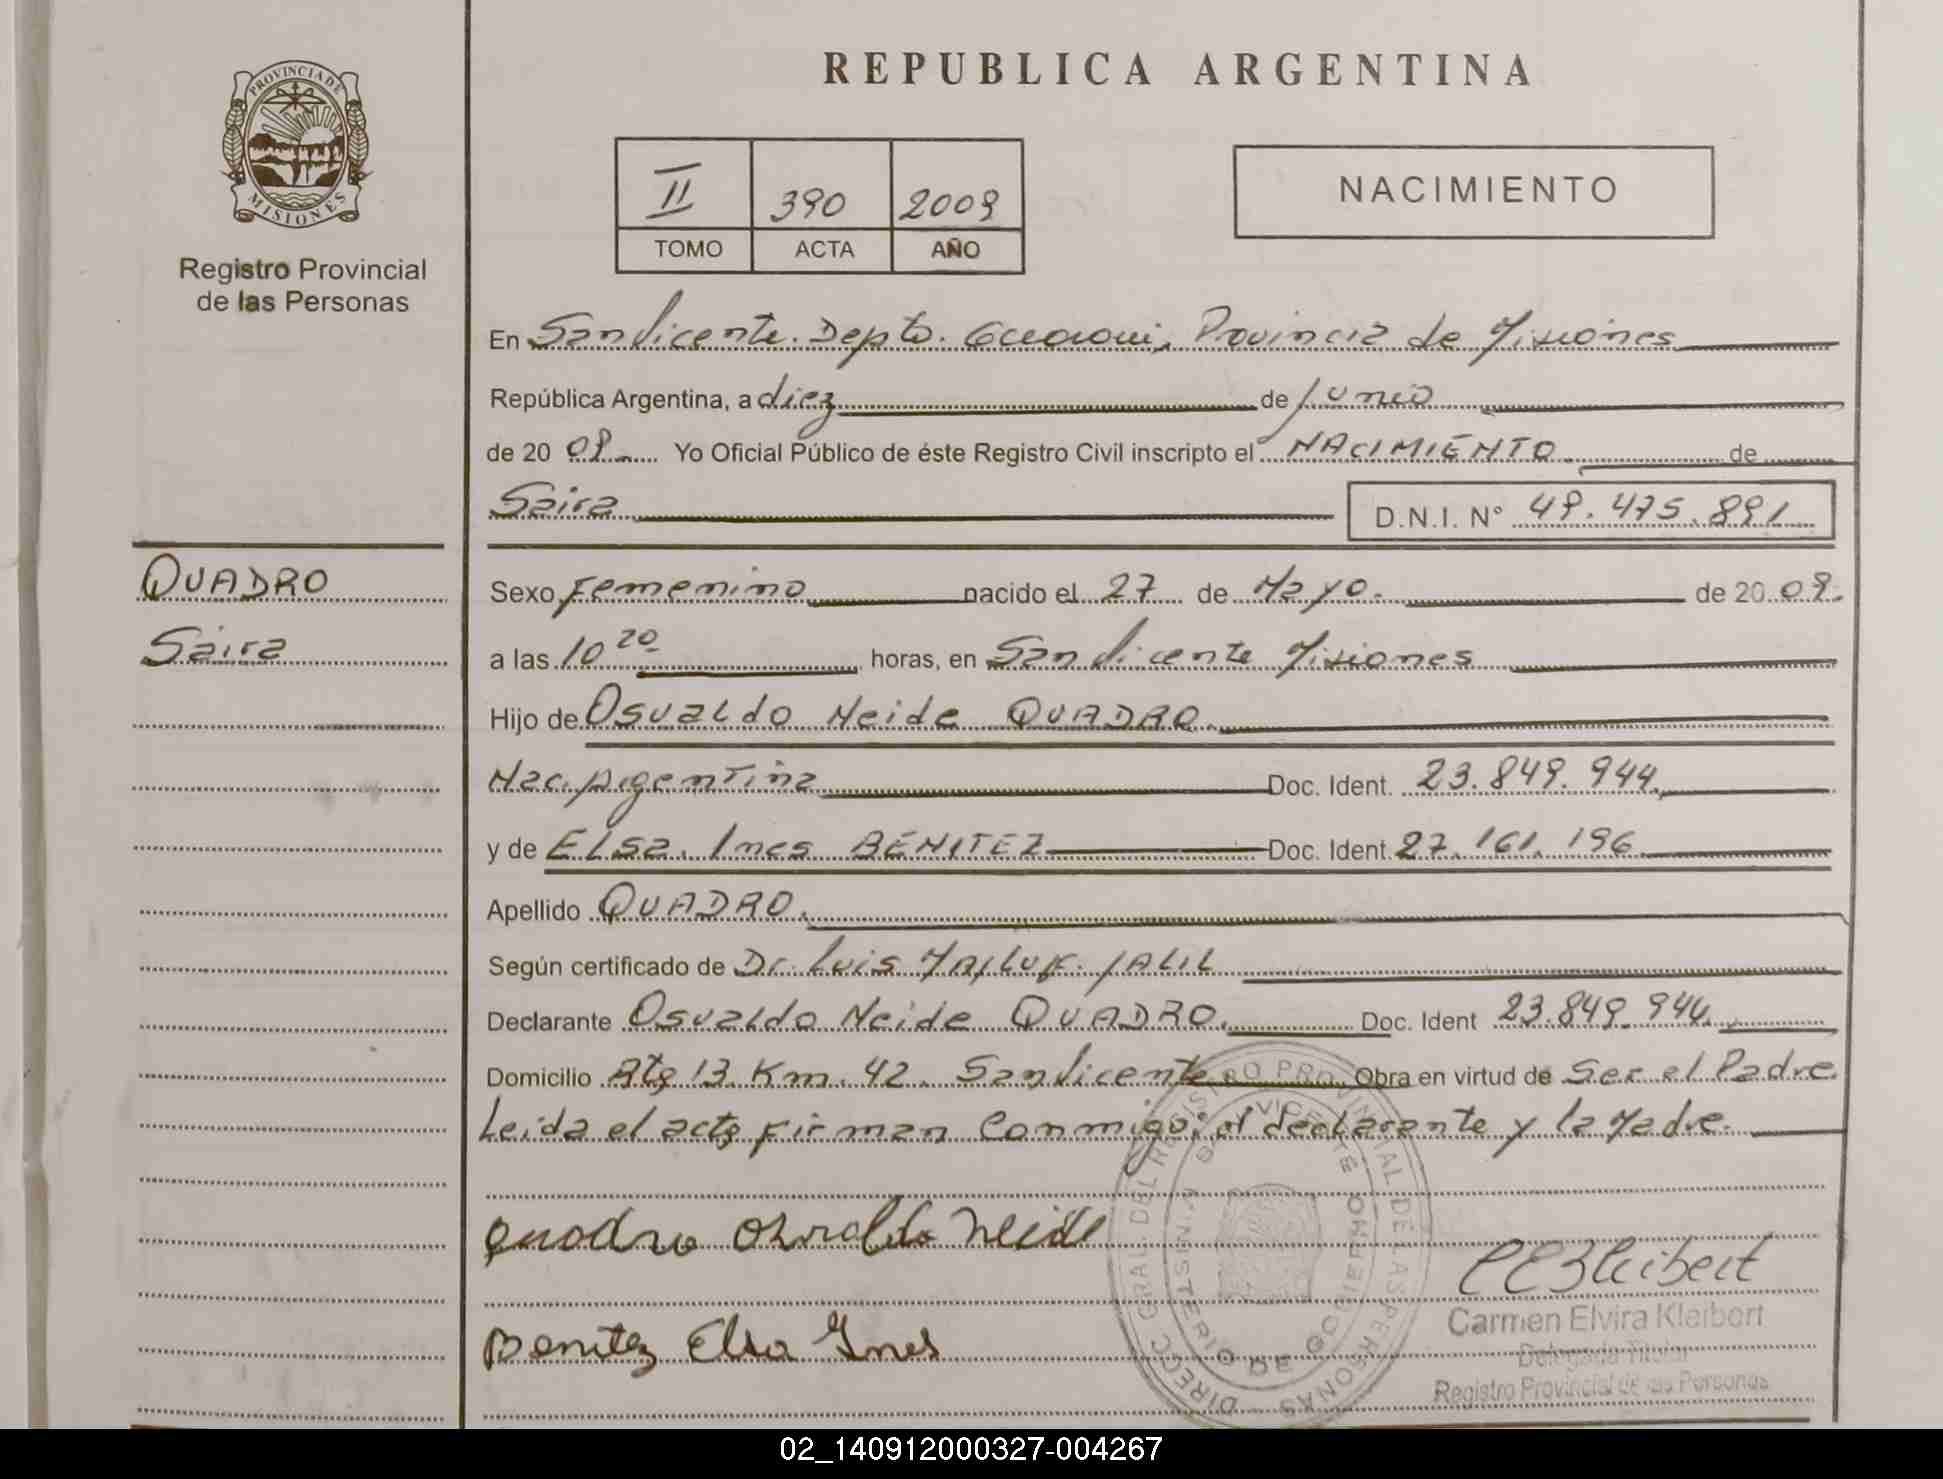 REPUBLICA ARGENTINA
PROVINCIA DE MISIONES
Registro Provincial
de las Personas
II 390 2009
TOMO ACTA AÑO
NACIMIENTO
En San Vicente. Depto. Guarani, Provincia de Misiones
República Argentina, a diez de Junio
de 20 09. Yo Oficial Público de éste Registro Civil inscripto el NACIMIENTO de
Saira D.N.I. N° 49.475.891
QUADRO
Saira
Sexo Femenino nacido el 27 de Mayo. de 20 09.
a las 10 20 horas, en San Vicente Misiones
Hijo de Osvaldo Neide QUADRO.
Nac. Argentina Doc. Ident. 23.849.944.
y de Elsa Ines BENITEZ Doc. Ident. 27.161.196
Apellido QUADRO.
Según certificado de Dr. Luis JALIL
Declarante Osvaldo Neide QUADRO. Doc. Ident 23.849.944.
Domicilio Rta 13 Km. 42. San Vicente Obra en virtud de Ser el Padre
Leida el acta firman conmigo; el declarante y la Madre.
Quadro Osvaldo Neide
Benitez Elsa Ines
Carmen Elvira Kleibert
Delegada Titular
Registro Provincial de las Personas
DIRECC. GRAL. DEL REGISTRO PROVINCIAL DE LAS PERSONAS
MINISTERIO DE GOBIERNO
SAN VICENTE
02_140912000327-004267